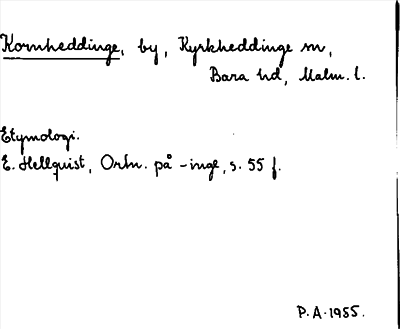 Kornheddinge, by, Kyrkheddinge sn,
Bara hd, Malm. l.
Etymologi.
E. Hellquist, Ortn. på -inge, s. 55 f.
P.A. 1955.